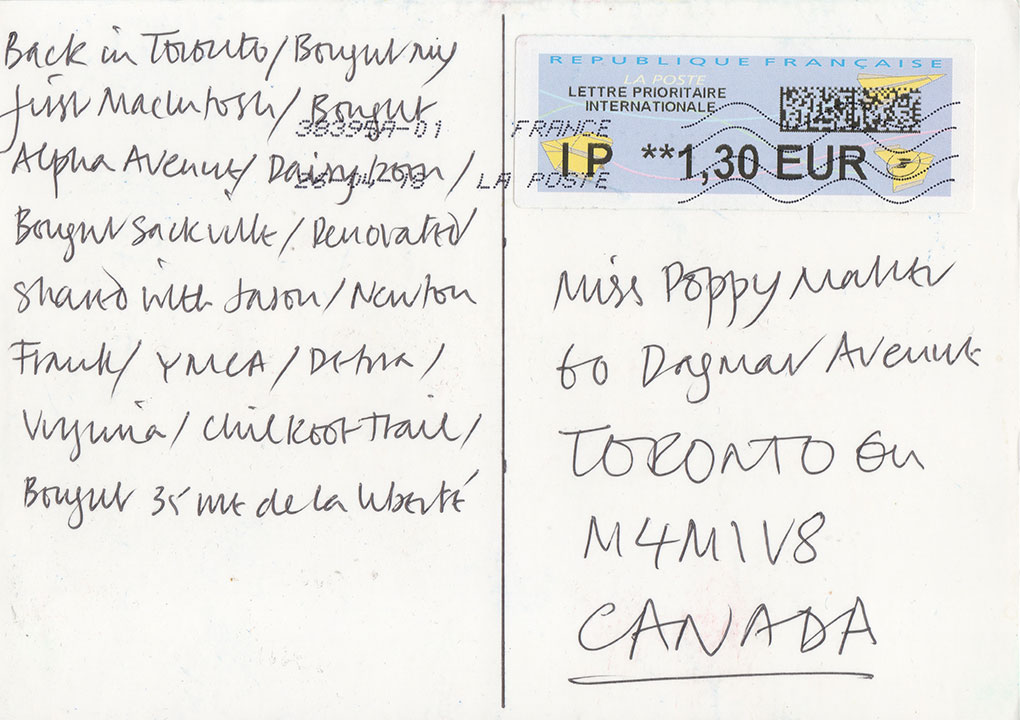 Back in Toronto/Bought my
first Macintosh/Bought
Alpha Avenue/Daisy born/
Bought Sackville/Renovated
Shared with Jason/Newton
Frank/YMCA/Debra/
Virginia/Chilkoot Trail/
Bought 35 rue de la liberté
REPUBLIQUE FRANÇAISE
LA POSTE
LETTRE PRIORITAIRE
INTERNATIONALE
IP **1,30 EUR
38395A-01 FRANCE
LA POSTE
Miss Poppy
60 Dagmar Avenue
TORONTO On
M4M1V8
CANADA